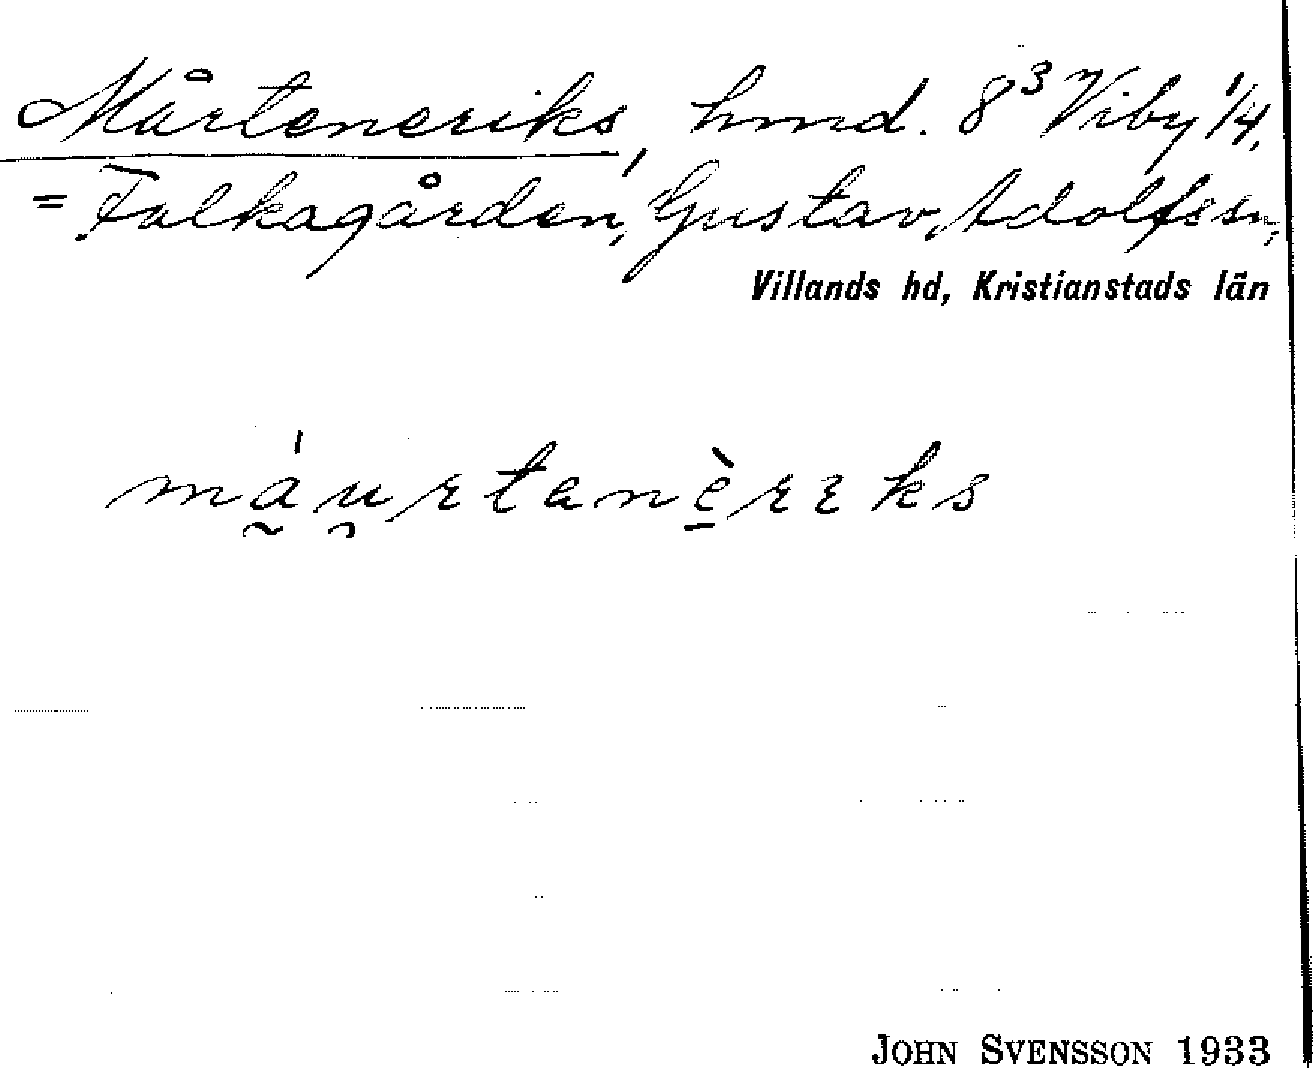 Mårteneriks, hmd. 8³ Viby 1/4,
= Falkagården, Gustav Adolfs sn,
Villands hd, Kristianstads län
má̰u̯rtanè̱rɪks
JOHN SVENSSON 1933